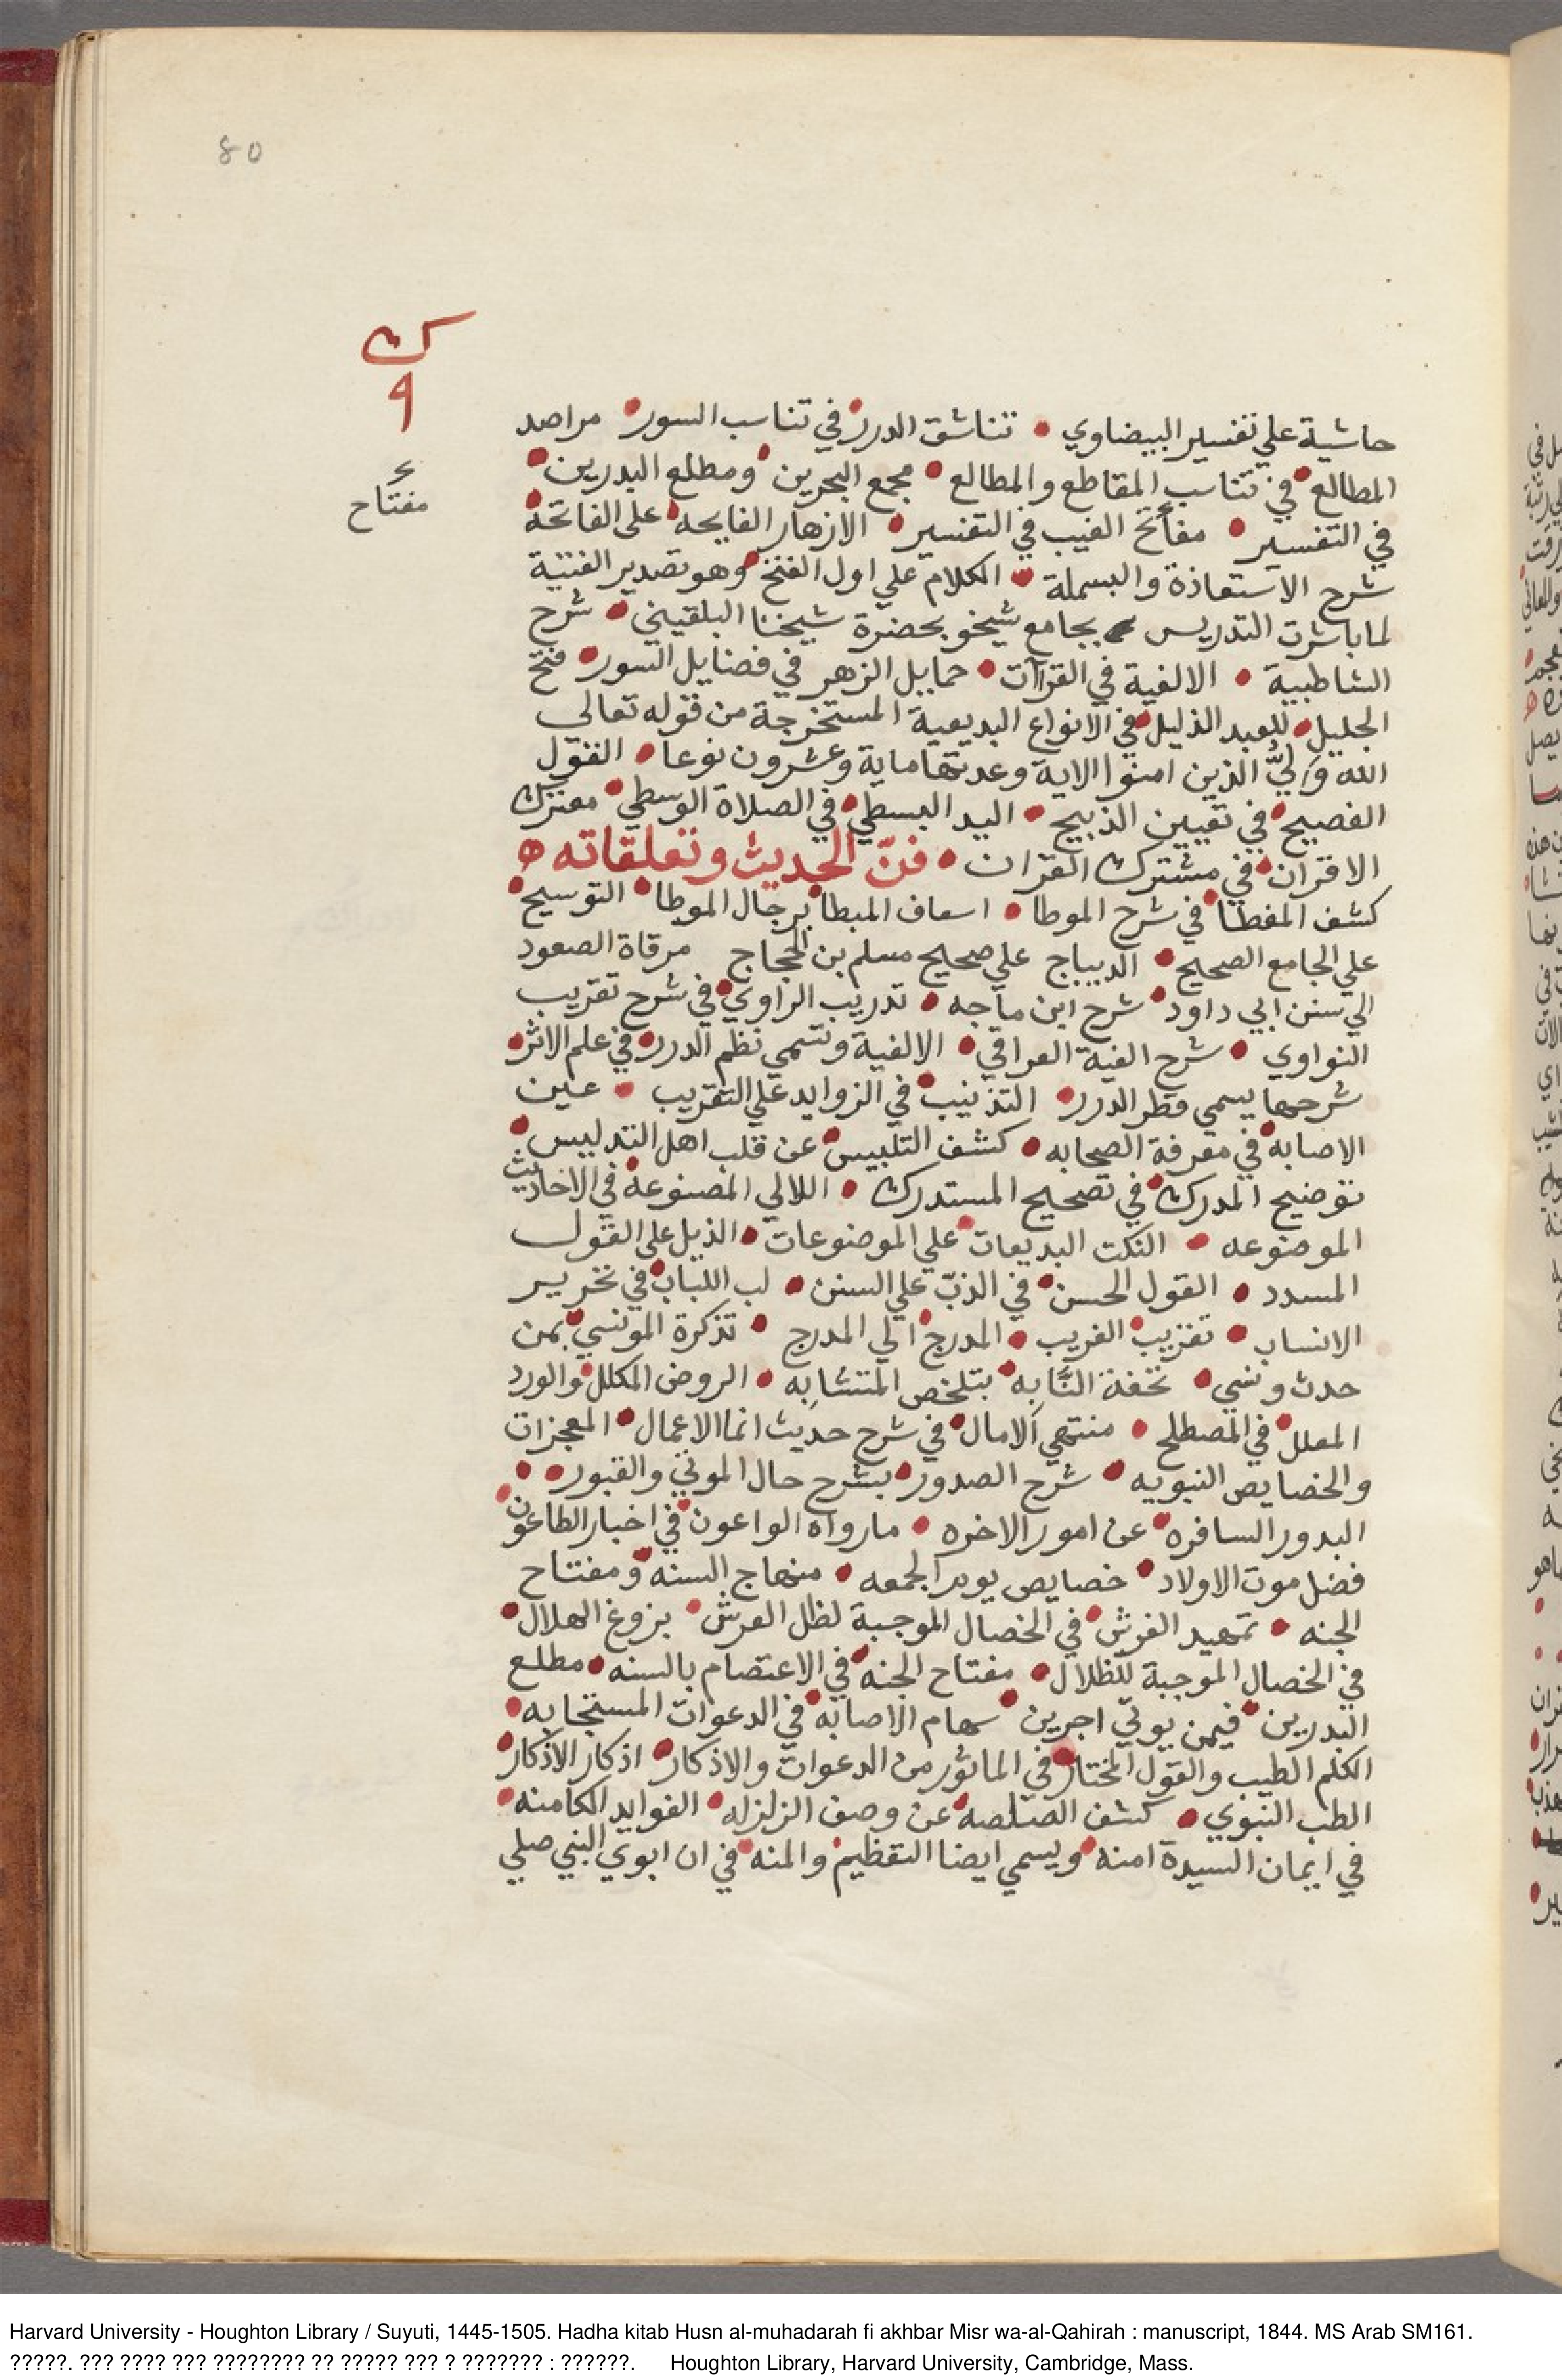 80
ك
٩
مفتاح
حاشية علي تفسير البيضاوي • تناشق الدرر في تناسب السور • مراصد
المطالع في تناسب المقاطع والمطالع • مجمع البحرين ومطلع البدرين •
في التفسير • مفاتح الغيب في التفسير • الازهار الفايحه على الفاتحه
شرح الاستعاذة والبسملة • الكلام علي اول الفتح وهو تصدير القنية
لما باشرت التدريس بجامع شيخو بحضرة شيخنا البلقيني • شرح
الشاطبية • الالفية في القراآت • حمايل الزهر في فضايل السور • فتح
الجليل للعبد الذليل في الانواع البديعية المستخرجة من قوله تعالي
الله وليُّ الذين امنوا الاية وعدتها ماية وعشرون نوعا • القول
الفصيح في تعيين الذبيح • اليد البسطي في الصلاة الوسطي • معترك
الاقران في مشترك القران • فنّ الحديث وتعلقاته ه
كشف المغطا في شرح الموطا • اسعاف المبطا برجال الموطا • التوسيح
علي الجامع الصحيح • الديباج علي صحيح مسلم بن الحجاج مرقاة الصعود
الي سنن ابي داود • شرح ابن ماجه • تدريب الراوي في شرح تقريب
النواوي • شرح الفية العراقي • الالفية وتسمي نظم الدرر في علم الاثر •
شرحها يسمي قطر الدرر • التذنيب في الزوايد علي التقريب • عين
الاصابه في معرفة الصحابه • كشف التلبيس عن قلب اهل التدليس •
توضيح المدرك في تصحيح المستدرك • اللالي المصنوعة في الاحاديث
الموضوعه • النكت البديعات علي الموضوعات • الذيل علي القول
المسدد • القول الحسن في الذبّ علي السنن • لب اللباب في تحرير
الانساب • تقريب الغريب • المدرج الي المدرج • تذكرة المونسي بمن
حدث ونسي • تحفة النَّابه بتلخص المتشابه • الروض المكلل والورد
المعلل في المصطلح • منتهي الامال في شرح حديث انما الاعمال • المعجزات
والخصايص النبويه • شرح الصدور بشرح حال الموتي والقبور •
البدور السافره عن امور الاخره • ما رواه الواعون في اخبار الطاعون
فضل موت الاولاد • خصايص يوم الجمعه • منهاج السنه ومفتاح
الجنه • تمهيد الفرش في الخصال الموجبة لظل العرش • بزوغ الهلال •
في الخصال الموجبة للظلال • مفتاح الجنه في الاعتصام بالسنه • مطلع
البدرين فيمن يوتي اجرين • سهام الاصابه في الدعوات المستجابه •
الكلم الطيب والقول المختار في الماثور من الدعوات والاذكار • اذكار الاذكار •
الطب النبوي • كشف الصلصه عن وصف الزلزله • الفوايد الكامنه •
في ايمان السيدة امنه ويسمي ايضا التعظيم والمنه في ان ابوي النبي صلي
Harvard University - Houghton Library / Suyuti, 1445-1505. Hadha kitab Husn al-muhadarah fi akhbar Misr wa-al-Qahirah : manuscript, 1844. MS Arab SM161.
?????. ??? ???? ??? ???????? ?? ????? ??? ? ??????? : ??????. Houghton Library, Harvard University, Cambridge, Mass.